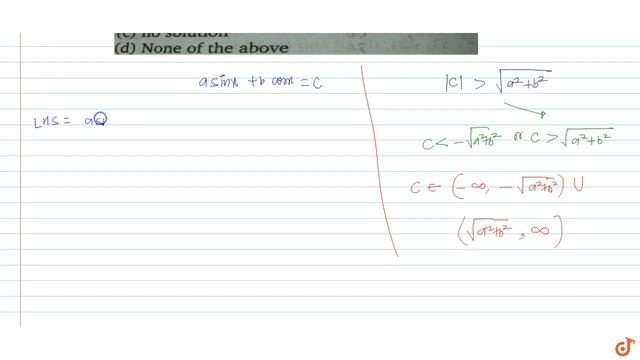 (c) no solution
(d) None of the above
a sinx + b cosx = C
LHS = as
|C| > √a²+b²
C < -√a²+b² or C > √a²+b²
C ∈ (-∞, -√a²+b²) ∪
(√a²+b², ∞)